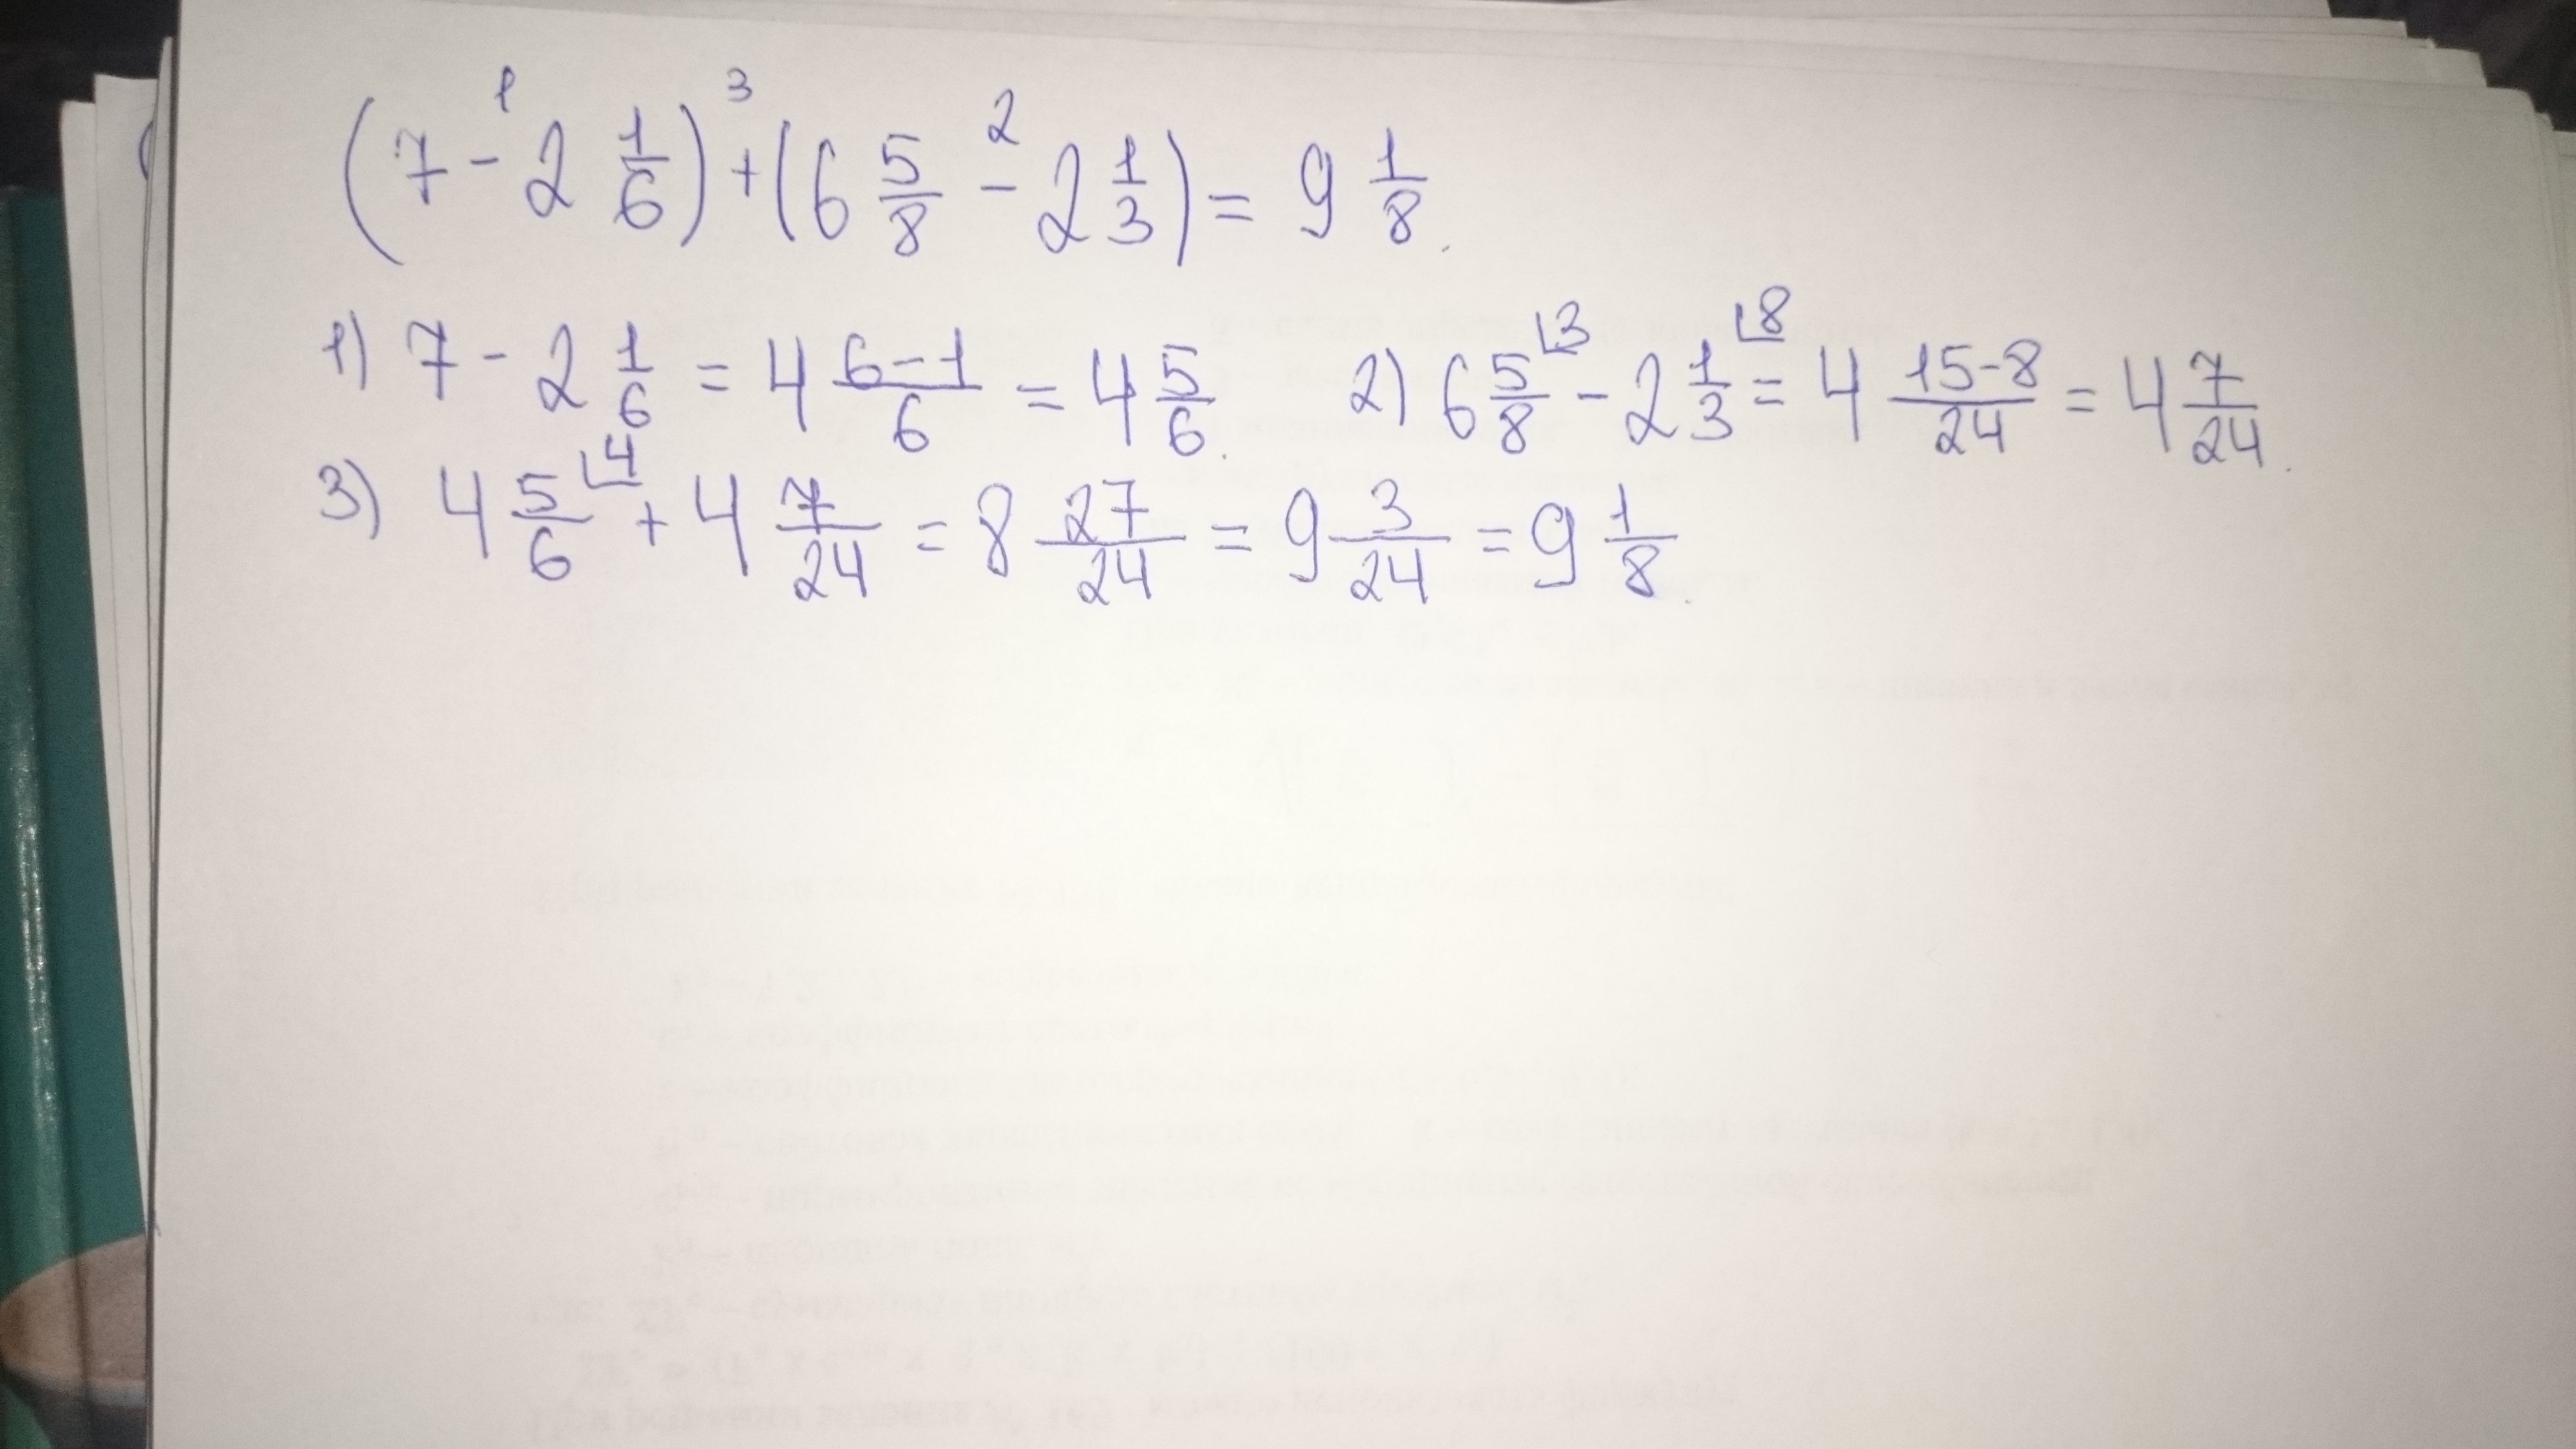 (7 - 2 1/6) + (6 5/8 - 2 1/3) = 9 1/8.
1) 7 - 2 1/6 = 4 6-1/6 = 4 5/6. 2) 6 5/8 - 2 1/3 = 4 15-8/24 = 4 7/24.
3) 4 5/6 + 4 7/24 = 8 27/24 = 9 3/24 = 9 1/8.